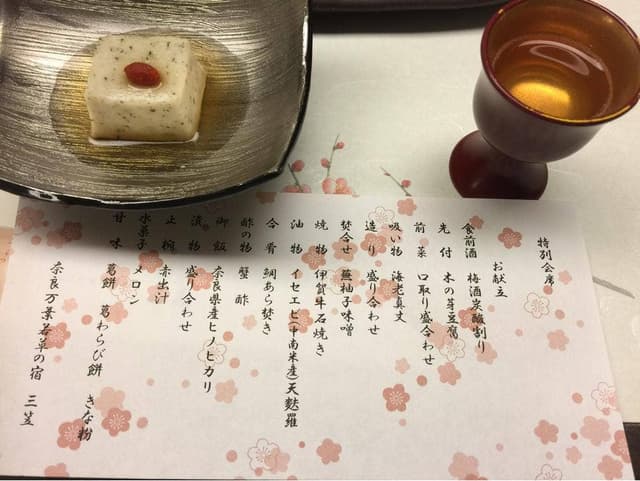 特別会席
お献立
食前酒 梅酒炭酸割り
先付 木の芽豆腐
前菜 口取り盛合わせ
吸い物 海老真丈
造り 盛り合わせ
焚合せ 蕪柚子味噌
焼物 伊賀牛石焼き
油物 イセエビ(中南米産)天麩羅
合肴 鯛あら焚き
酢の物 蟹酢
御飯 奈良県産ヒノヒカリ
漬物 盛り合わせ
止椀 赤出汁
水菓子 メロン
甘味 葛餅 葛わらび餅 きな粉
奈良万葉若草の宿 三笠